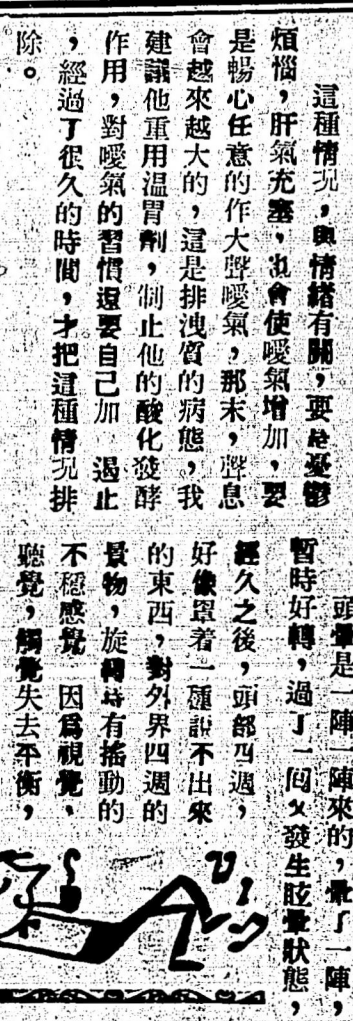 這種情況，與情緒有關，要是憂鬱
煩惱，肝氣充塞，也會使噯氣增加，要
是暢心任意的作大聲噯氣，那末，聲息
會越來越大的，這是排洩質的病態，我
建議他重用溫胃劑，制止他的酸化發酵
作用，對噯氣的習慣還要自己加 遏止
，經過了很久的時間，才把這種情況排
除。
頭暈是一陣一陣來的，暈了一陣，
暫時好轉，過了一回又發生眩暈狀態，
經久之後，頭部四週，
好像罩着一種說不出來
的東西，對外界四週的
景物，旋轉時有搖動的
不穩感覺 因爲視覺、
聽覺，觸覺失去平衡，